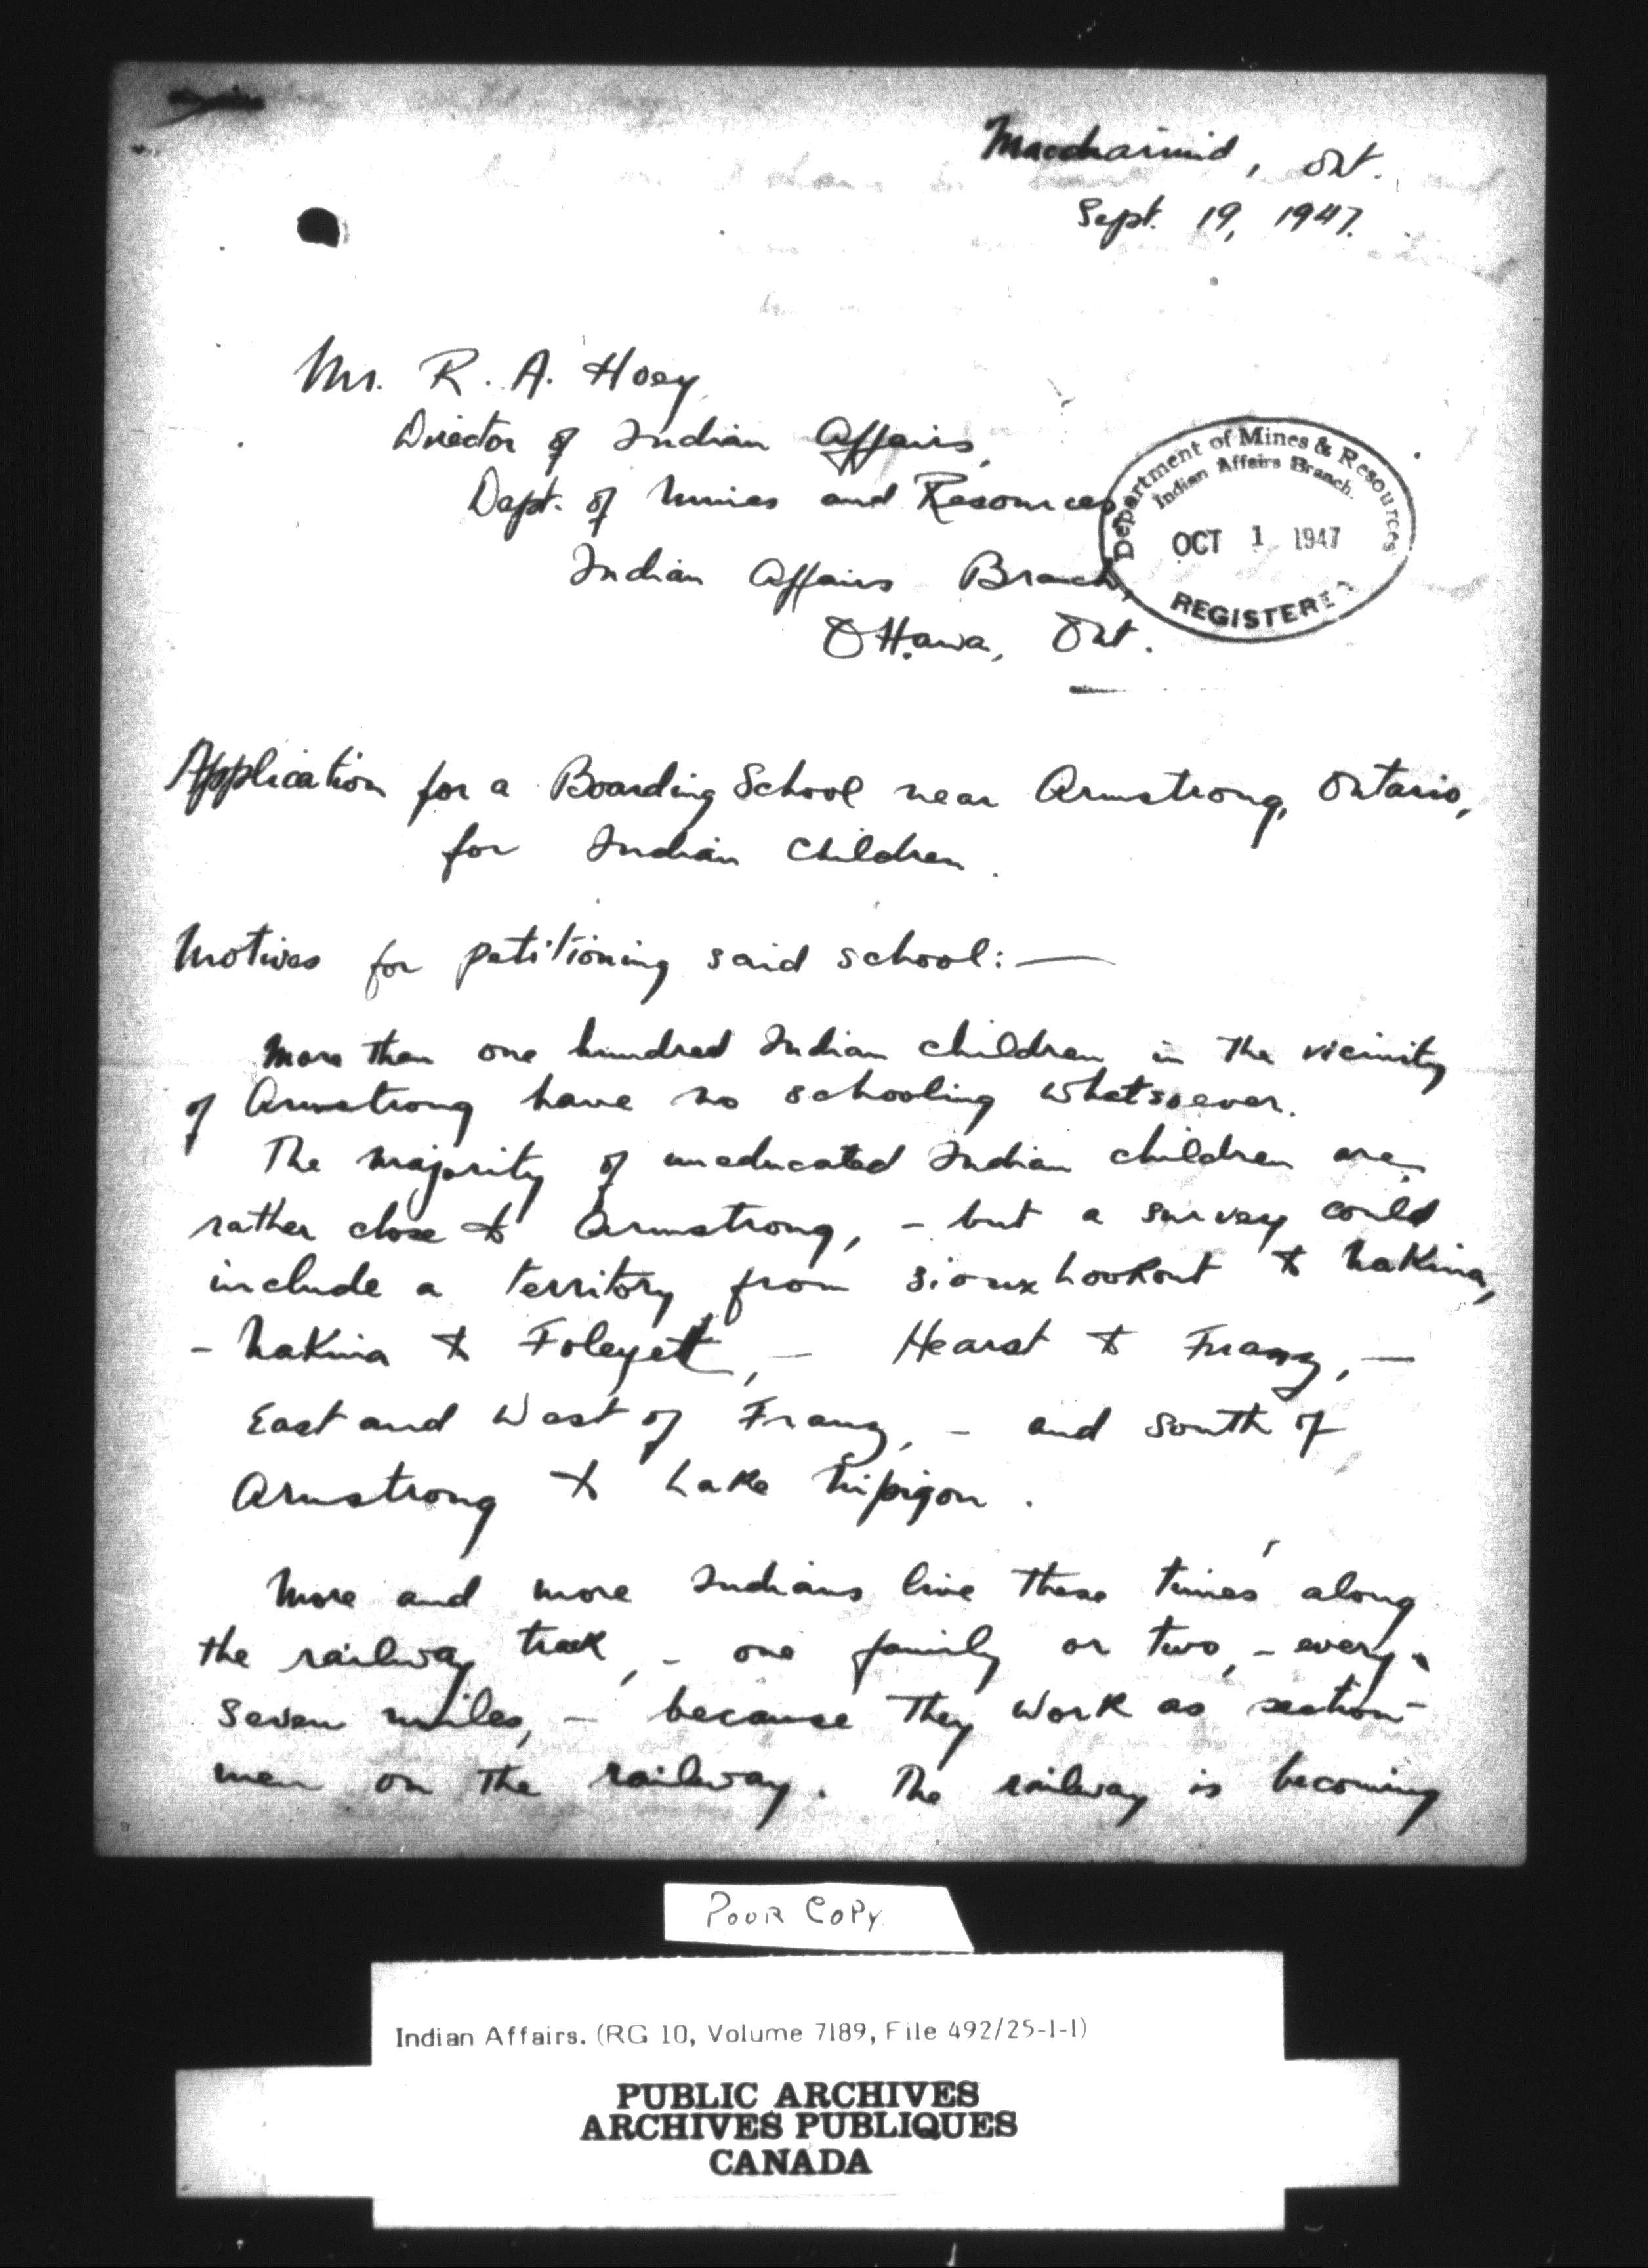 Macdiarmid, Ont.
Sept. 19, 1947.
Mr. R. A. Hoey,
Director of Indian Affairs,
Dept. of Mines and Resources,
Indian Affairs Branch,
Ottawa, Ont.
Department of Mines & Resources
Indian Affairs Branch.
OCT 1 1947
REGISTERED
Application for a Boarding School near Armstrong, Ontario,
for Indian Children.
Motives for petitioning said school: —
More than one hundred Indian children in the vicinity
of Armstrong have no schooling whatsoever.
The majority of uneducated Indian children are
rather close to Armstrong, - but a survey could
include a territory from Sioux Lookout to Nakina,
- Nakina to Foleyet, - Hearst to Franz, -
East and West of Franz, - and South of
Armstrong to Lake Nipigon.
More and more Indians live these times along
the railway track, - one family or two, - every
seven miles, - because they work as section-
men on the railway. The railway is becoming
POOR COPY
Indian Affairs. (RG 10, Volume 7189, File 492/25-1-1)
PUBLIC ARCHIVES
ARCHIVES PUBLIQUES
CANADA